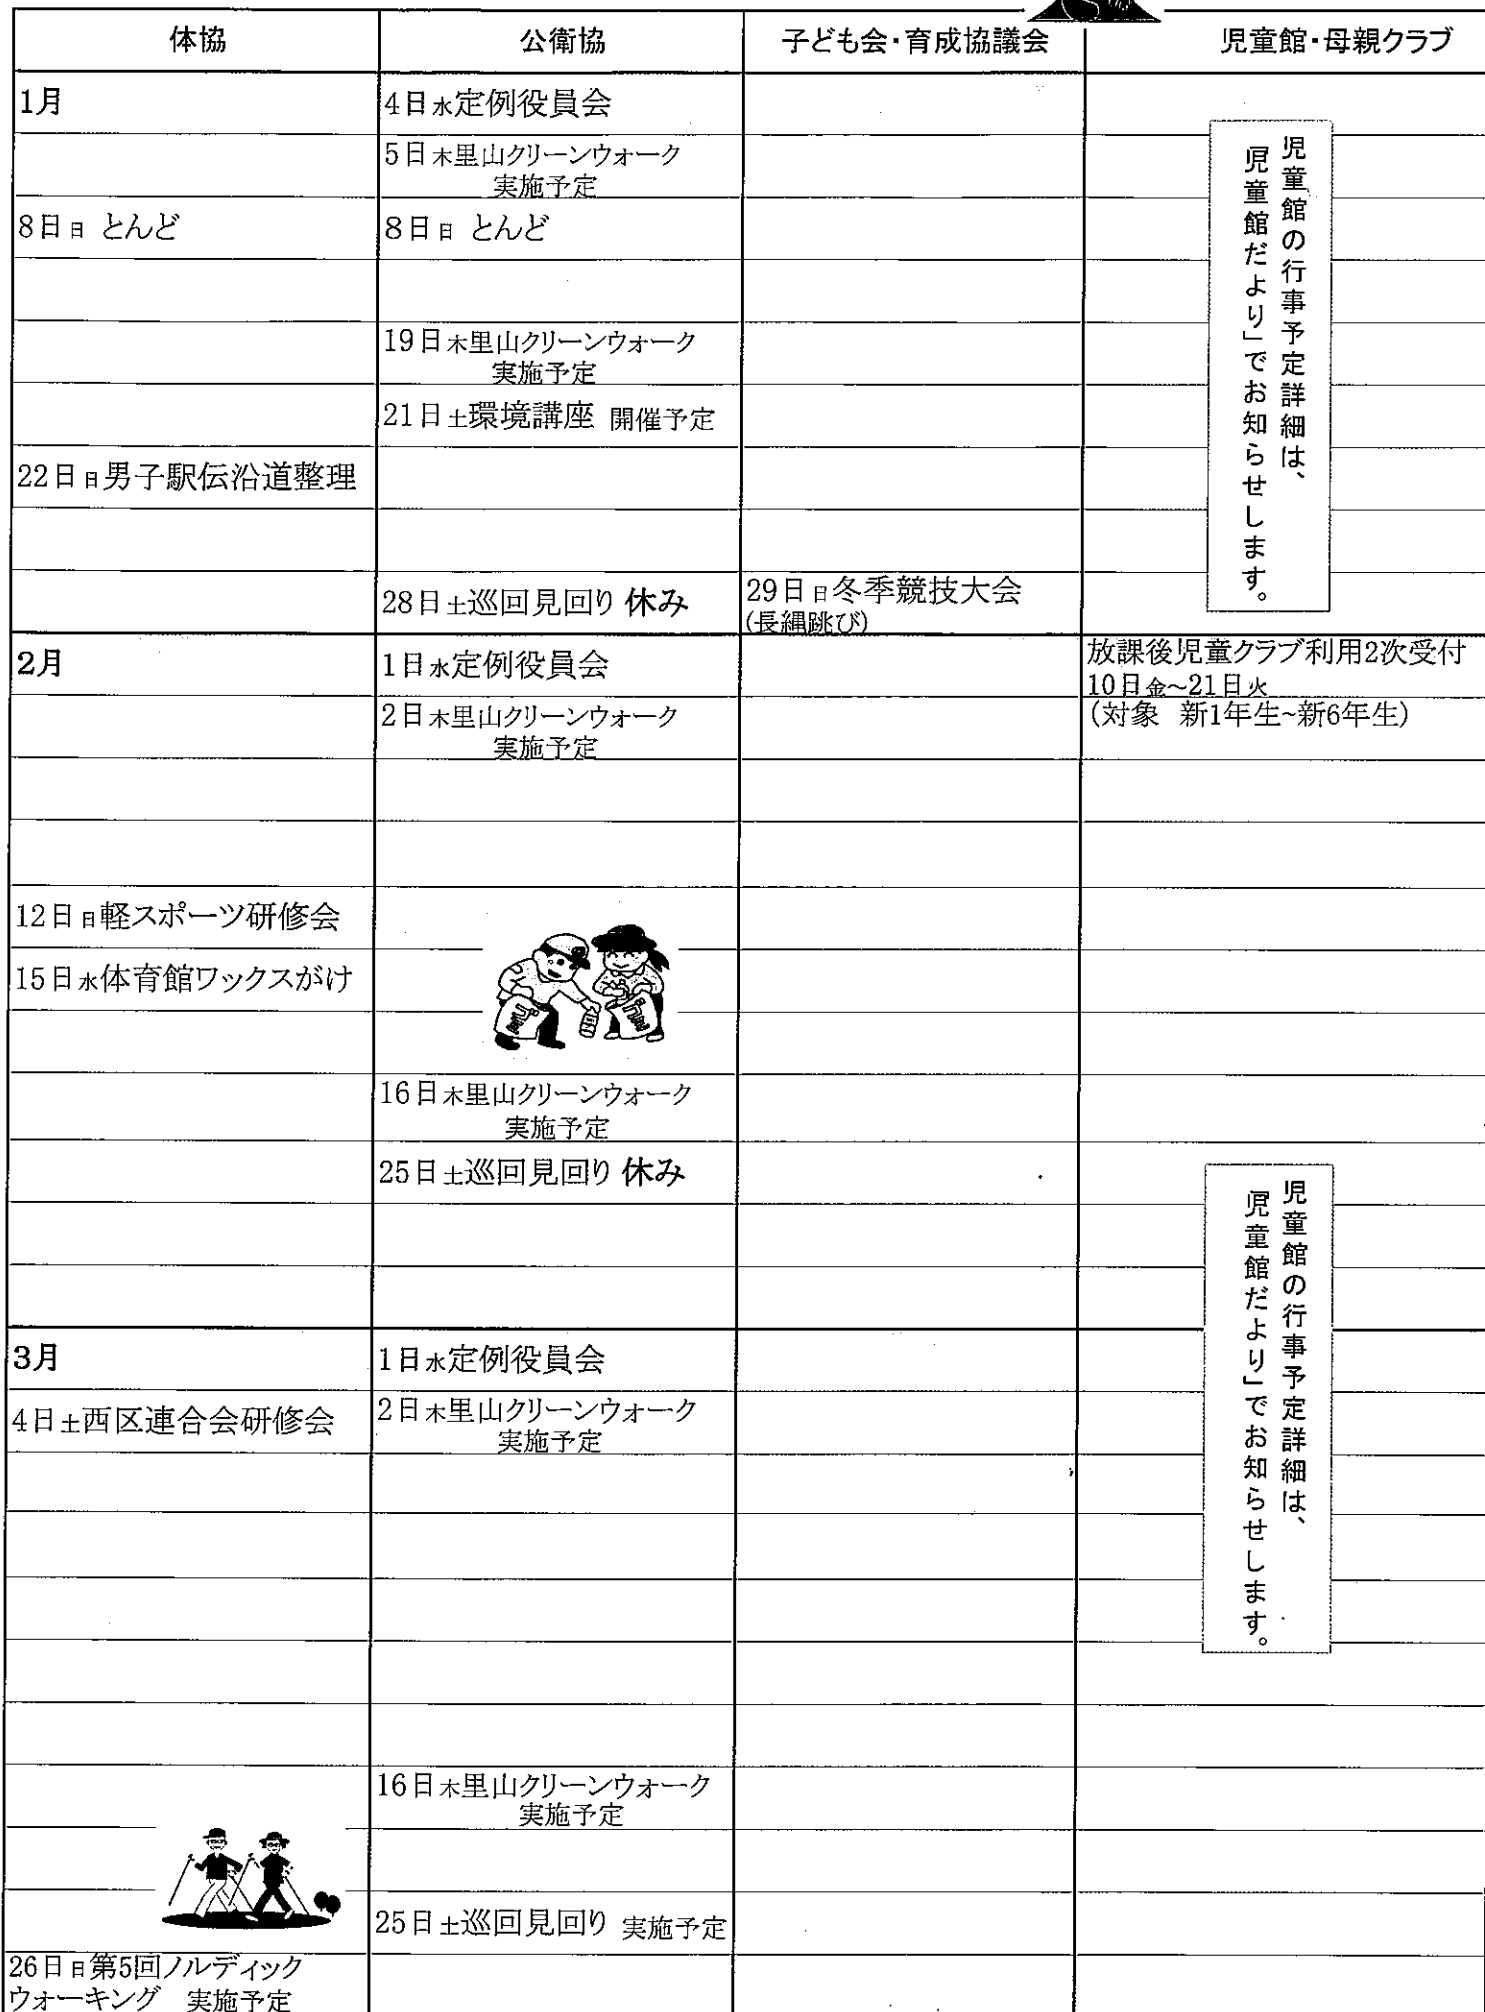 体協 公衛協 子ども会・育成協議会 児童館・母親クラブ
1月 4日水定例役員会
5日木里山クリーンウォーク
実施予定
8日日 とんど 8日日 とんど
19日木里山クリーンウォーク
実施予定
21日土環境講座 開催予定
22日日男子駅伝沿道整理
28日土巡回見回り 休み 29日日冬季競技大会
(長縄跳び)
児童館の行事予定詳細は、
児童館だより」でお知らせします。
2月 1日水定例役員会 放課後児童クラブ利用2次受付
10日金~21日火
2日木里山クリーンウォーク (対象 新1年生~新6年生)
実施予定
12日日軽スポーツ研修会
15日水体育館ワックスがけ
16日木里山クリーンウォーク
実施予定
25日土巡回見回り 休み
児童館の行事予定詳細は、
児童館だより」でお知らせします。
3月 1日水定例役員会
4日土西区連合会研修会 2日木里山クリーンウォーク
実施予定
16日木里山クリーンウォーク
実施予定
25日土巡回見回り 実施予定
26日日第5回ノルディック
ウォーキング 実施予定